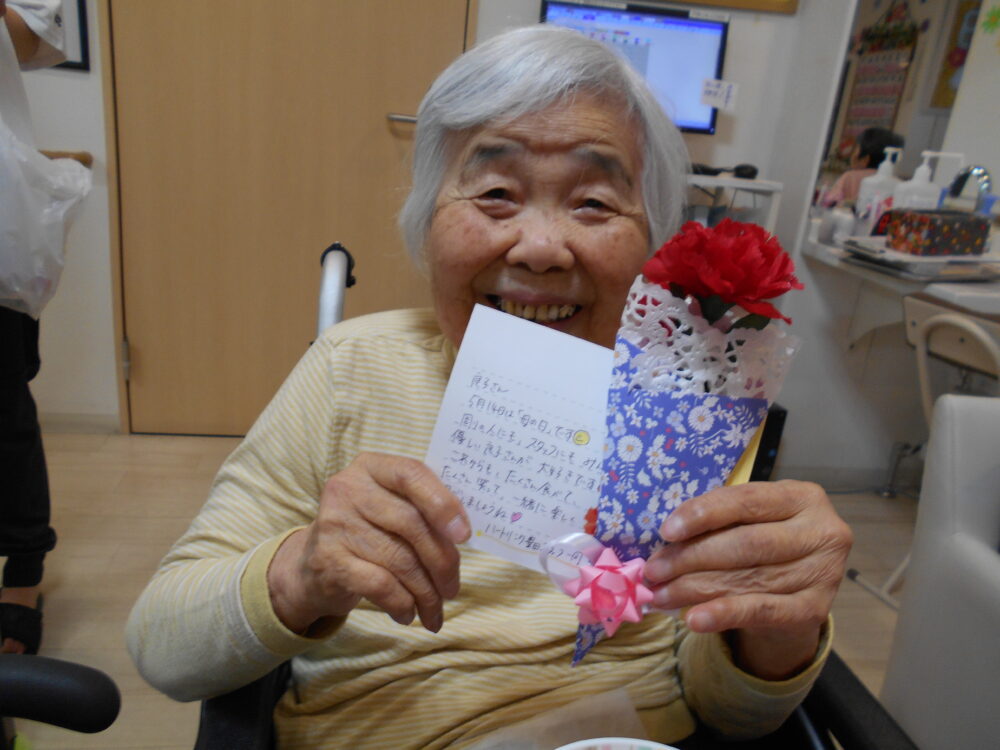 良子さん
5月14日は「母の日」です
周りの人にも、スタッフにも
優しい良子さんが 大好きです
これからも、たくさん食べて、
たくさん笑って、一緒に楽しく
しましょうね
ハートリンク豊田 スタッフ一同